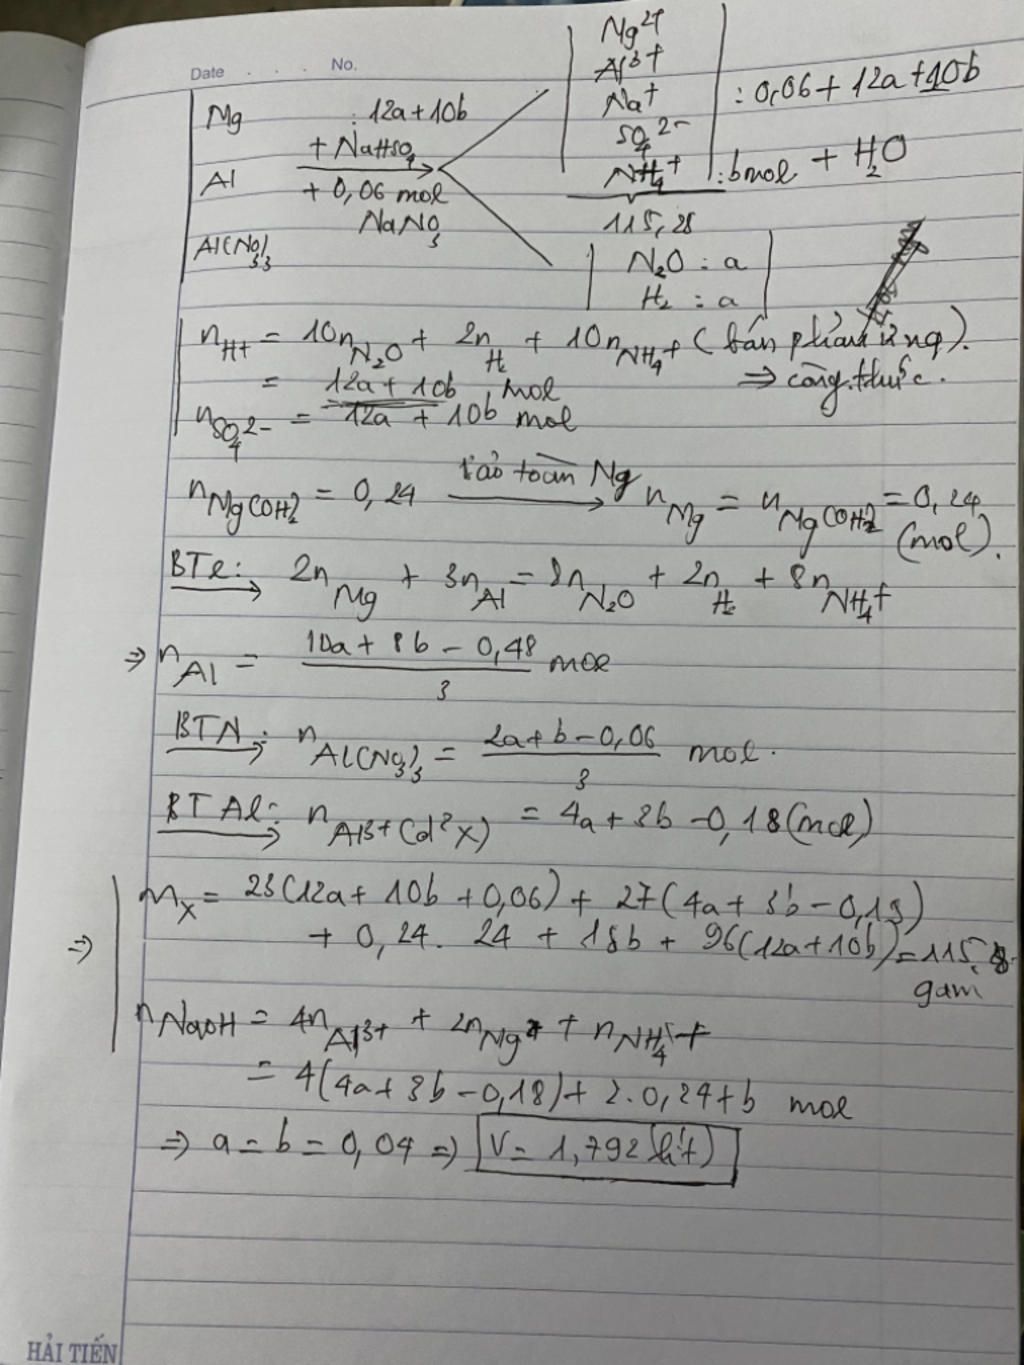 Date . . . No.
Mg : 12a + 10b
+ NaHSO4
Al + 0,06 mol
NaNO3
Al(NO3)3
Mg2+
Al3+
Na+ : 0,06 + 12a + 10b
SO4 2-
NH4+ : bmol + H2O
115,28
N2O : a
H2 : a
nH+ = 10nN2O + 2nH2 + 10nNH4+ (bán phản ứng).
= 12a + 10b mol => công thức.
nSO4 2- = 12a + 10b mol
nMg(OH)2 = 0,24 bảo toàn Mg → nMg = nMg(OH)2 = 0,24 (mol).
BTe: → 2nMg + 3nAl = 8nN2O + 2nH2 + 8nNH4+
=> nAl = (10a + 8b - 0,48)/3 mol
BTN: → nAl(NO3)3 = (2a + b - 0,06)/3 mol.
BT Al: → nAl3+ (d² X) = 4a + 3b - 0,18 (mol)
mX = 23(12a + 10b + 0,06) + 27(4a + 3b - 0,18)
=> + 0,24. 24 + 18b + 96(12a + 10b) = 115,28
gam
nNaOH = 4nAl3+ + 2nMg2+ + nNH4+
= 4(4a + 3b - 0,18) + 2.0,24 + b mol
=> a = b = 0,04 => V = 1,792 (lít)
HẢI TIẾN